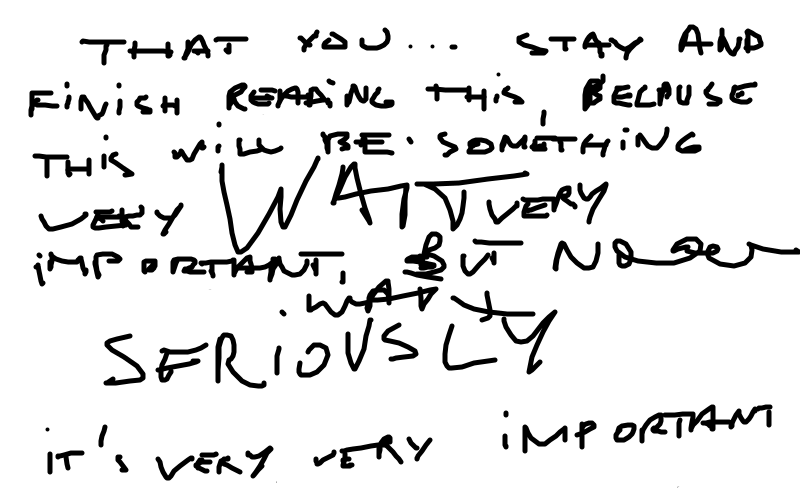 THAT YOU... STAY AND
FiNiSH READING THIS, BECAUSE
THIS WILL BE SOMETHING
VERY WAIT VERY
iMPORTANT, BUT
I WANT
SERiOUSLY
iT'S VERY VERY iMPORTANT